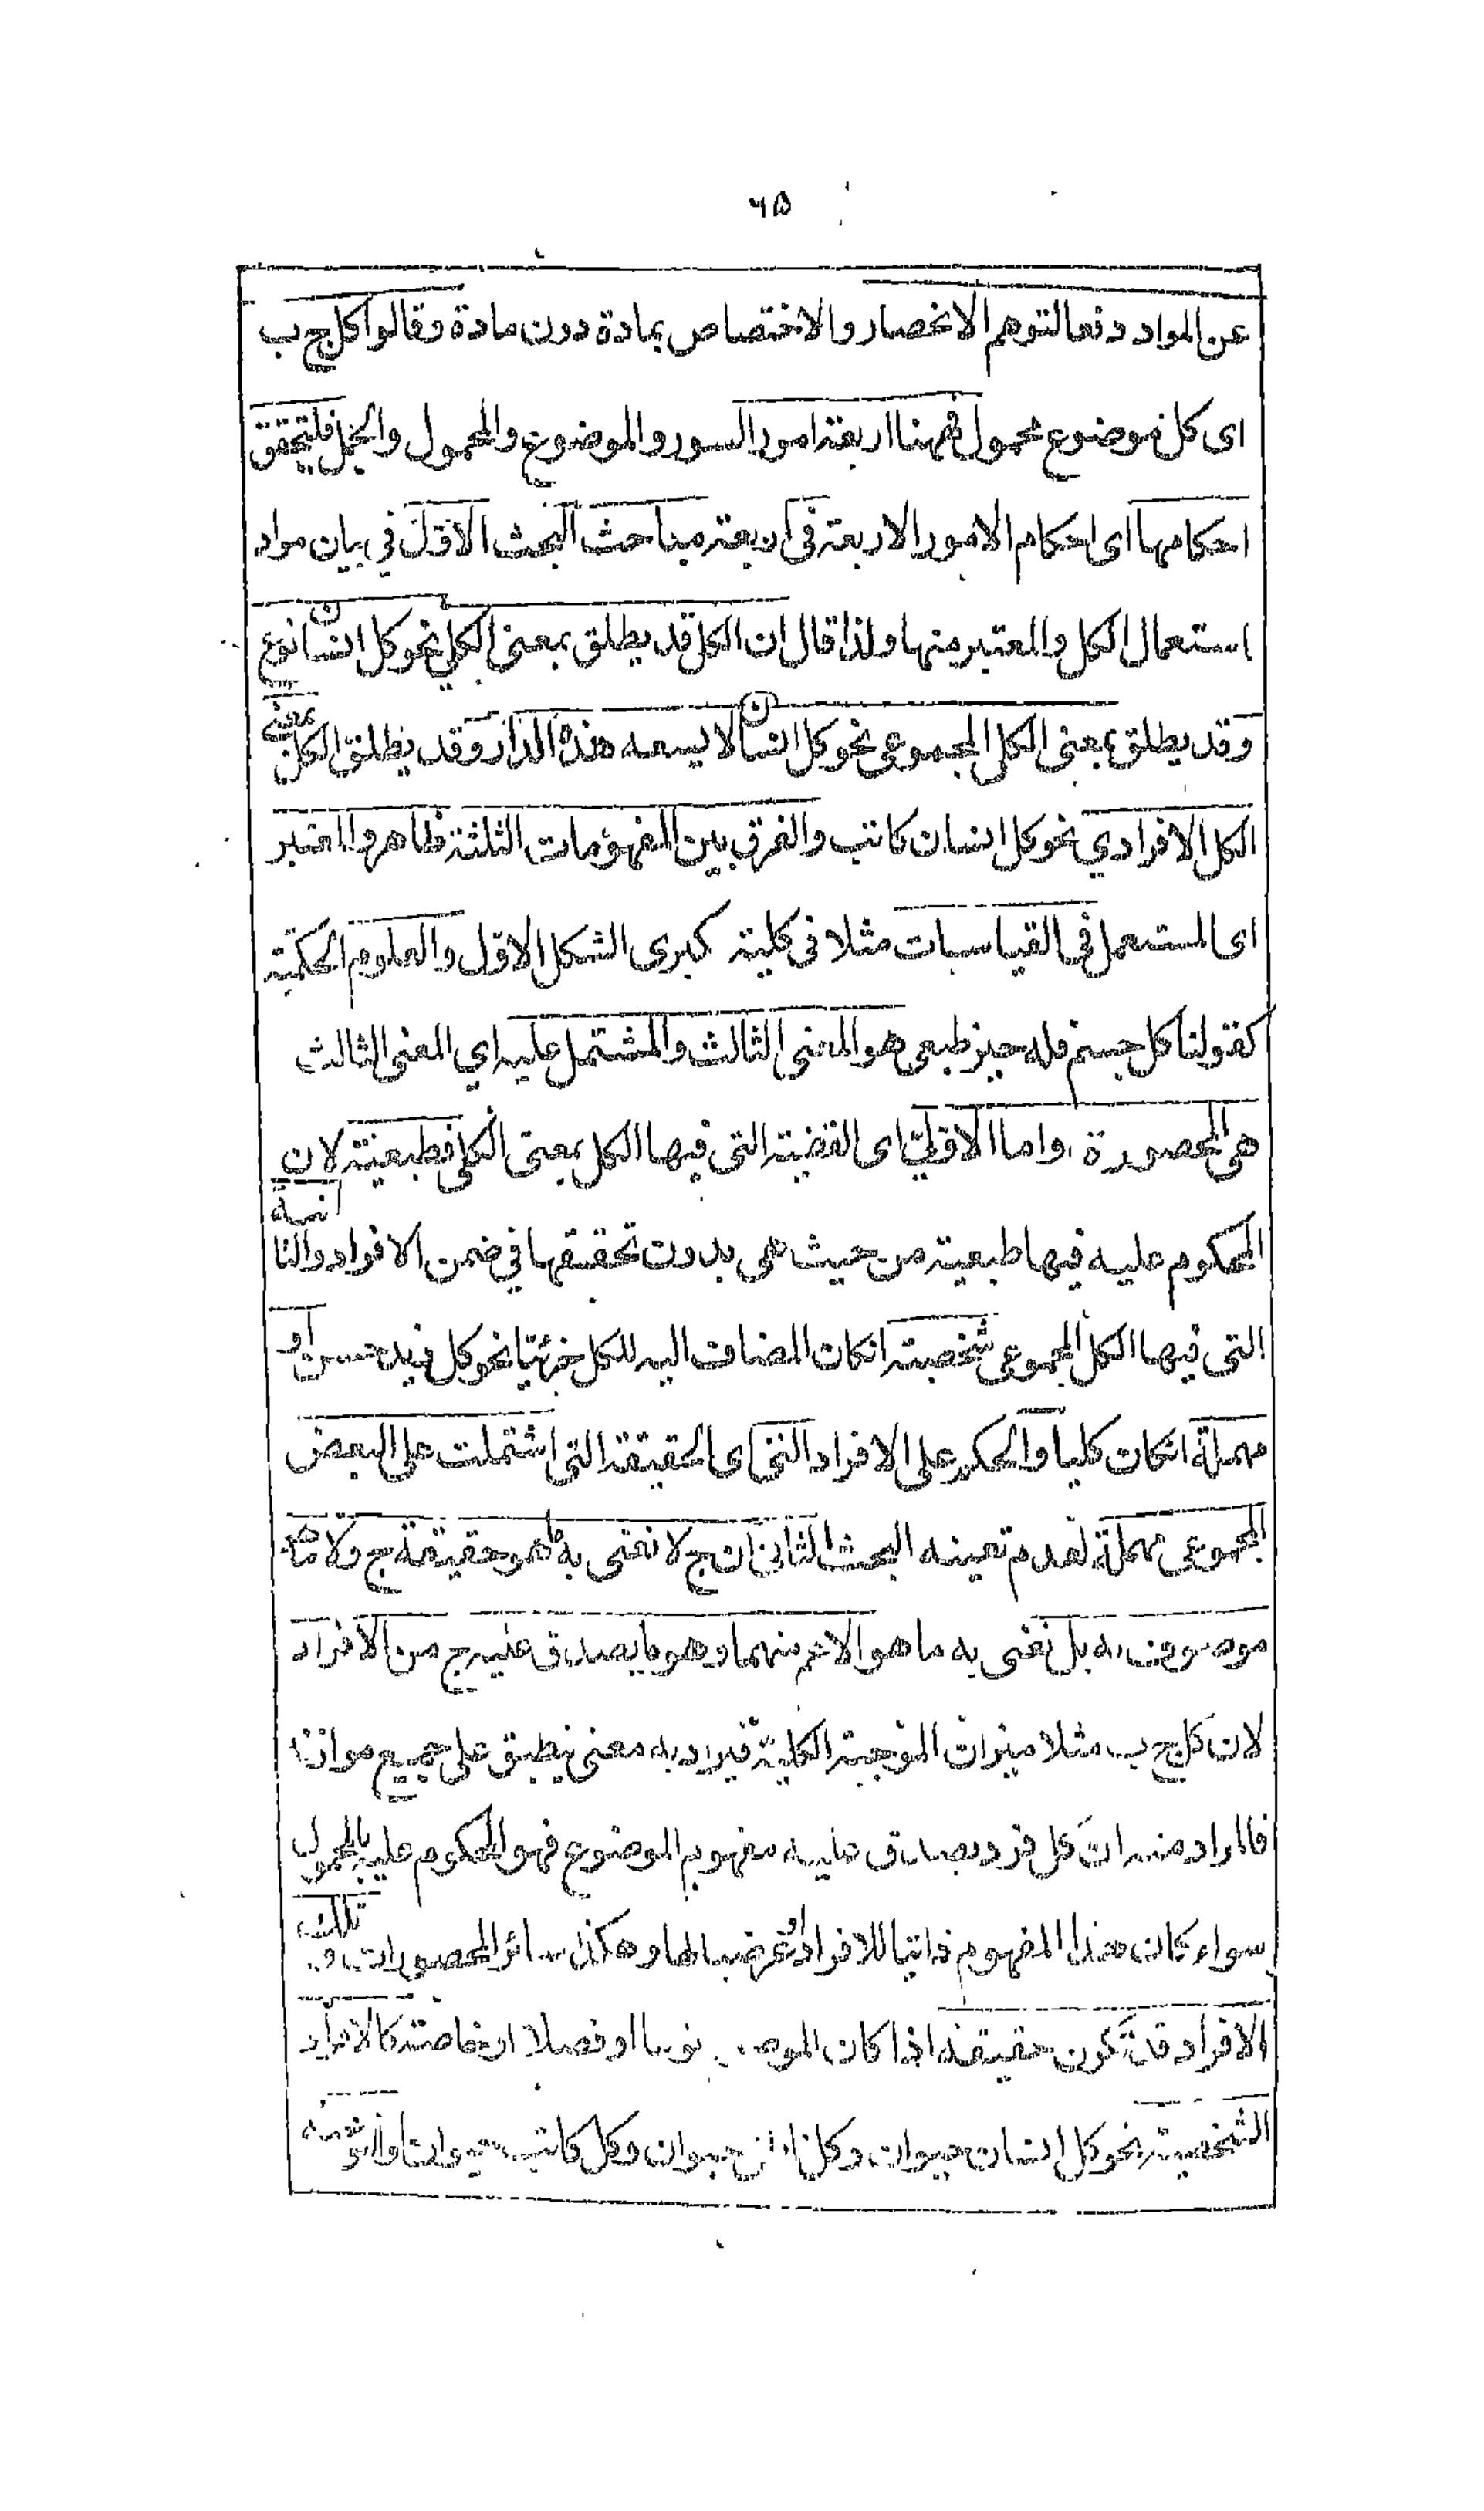 ٦٥
عن المواد دفعا لتوهم الانحصار والاختصاص بمادة دون مادة وقالوا كل ج ب
اى كل موضوع محمول فههنا اربعة امور السور والموضوع والمحمول والحمل فلتحقق
احكامها اى احكام الامور الاربعة فى اربعة مباحث البحث الاول في بيان مواد
استعمال الكل والمعتبر منها ولذا قال ان الكل قد يطلق بمعنى الكلي نحو كل انسان نوع
وقد يطلق بمعنى الكل المجموعى نحو كل انسان لا يسعه هذه الدار وقد يطلق الكل بمعنى
الكل الافرادي نحو كل انسان كاتب والفرق بين المفهومات الثلثة ظاهر والمعتبر
اى المستعمل فى القياسات مثلا فى كلية كبرى الشكل الاول والعلوم الحكمية
كقولنا كل جسم فله حيز طبعى هو المعنى الثالث والمشتمل عليه اي المعنى الثالث
هى المحصورة واما الاولى اى القضية التى فيها الكل بمعنى الكلى فطبعية لان
المحكوم عليه فيها طبعية من حيث هى بدون تحقيقها في ضمن الافراد والثانية
التى فيها الكل المجموعى شخصية انكان المضاف اليه للكل جزئيا نحو كل زيد حسن او
مهملة انكان كليا والحكم على الافراد التى اى الحقيقة التى اشتملت على البعض
المجموعى مهملة لعدم تعينه البحث الثانى ان ج لا نعنى به ما هو حقيقة ج ولا ما هو
موصوف به بل نعنى به ما هو الاعم منهما وهو ما يصدق عليه ج من الافراد
لان كل ج ب مثلا ميزان الموجبة الكلية فيراد به معنى ينطبق على جميع موادها
فالمراد منه ان كل فرد يصدق عليه مفهوم الموضوع فهو المحكوم عليه بالمحمول
سواء كان هذا المفهوم ذاتيا للافراد او عرضيا لها وهكذا سائر المحصورات و تلك
الافراد قد تكون حقيقة اذا كان نوعا او فصلا او خاصة كالافراد
الشخصية نحو كل انسان حيوان وكل حيوان وكل كاتب حيوان